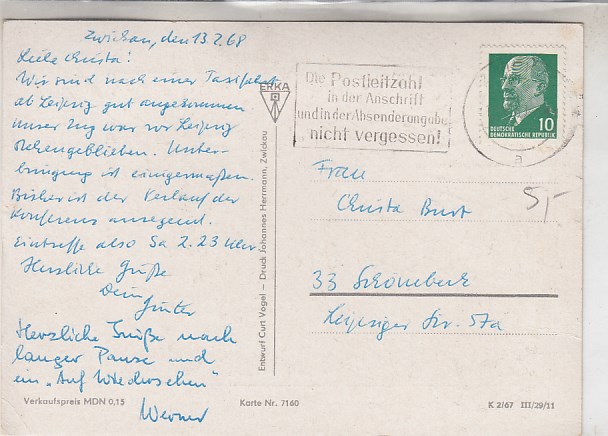 Zwickau, den 13.2.68
Liebe Christa!
Wir sind nach einer Taxifahrt
ab Leipzig gut angekommen.
Unser Zug war vor Leipzig
stehengeblieben. Unter-
bringung ist einigermaßen.
Bisher ist der Verlauf der
Konferenz anregend.
Eintreffe also Sa 2.23 Uhr
Herzliche Grüße
Dein Günter
Herzliche Grüße nach
langer Pause und
ein „Auf Wiedersehen"
Werner
Verkaufspreis MDN 0,15
Karte Nr. 7160
K 2/67 III/29/11
ERKA
Entwurf Curt Vogel – Druck Johannes Herrmann, Zwickau
Die Postleitzahl
in der Anschrift
und in der Absenderangabe
nicht vergessen!
a
10
DEUTSCHE
DEMOKRATISCHE REPUBLIK
5,-
Frau
Christa
33 Schönebeck
Leipziger Str. 57a